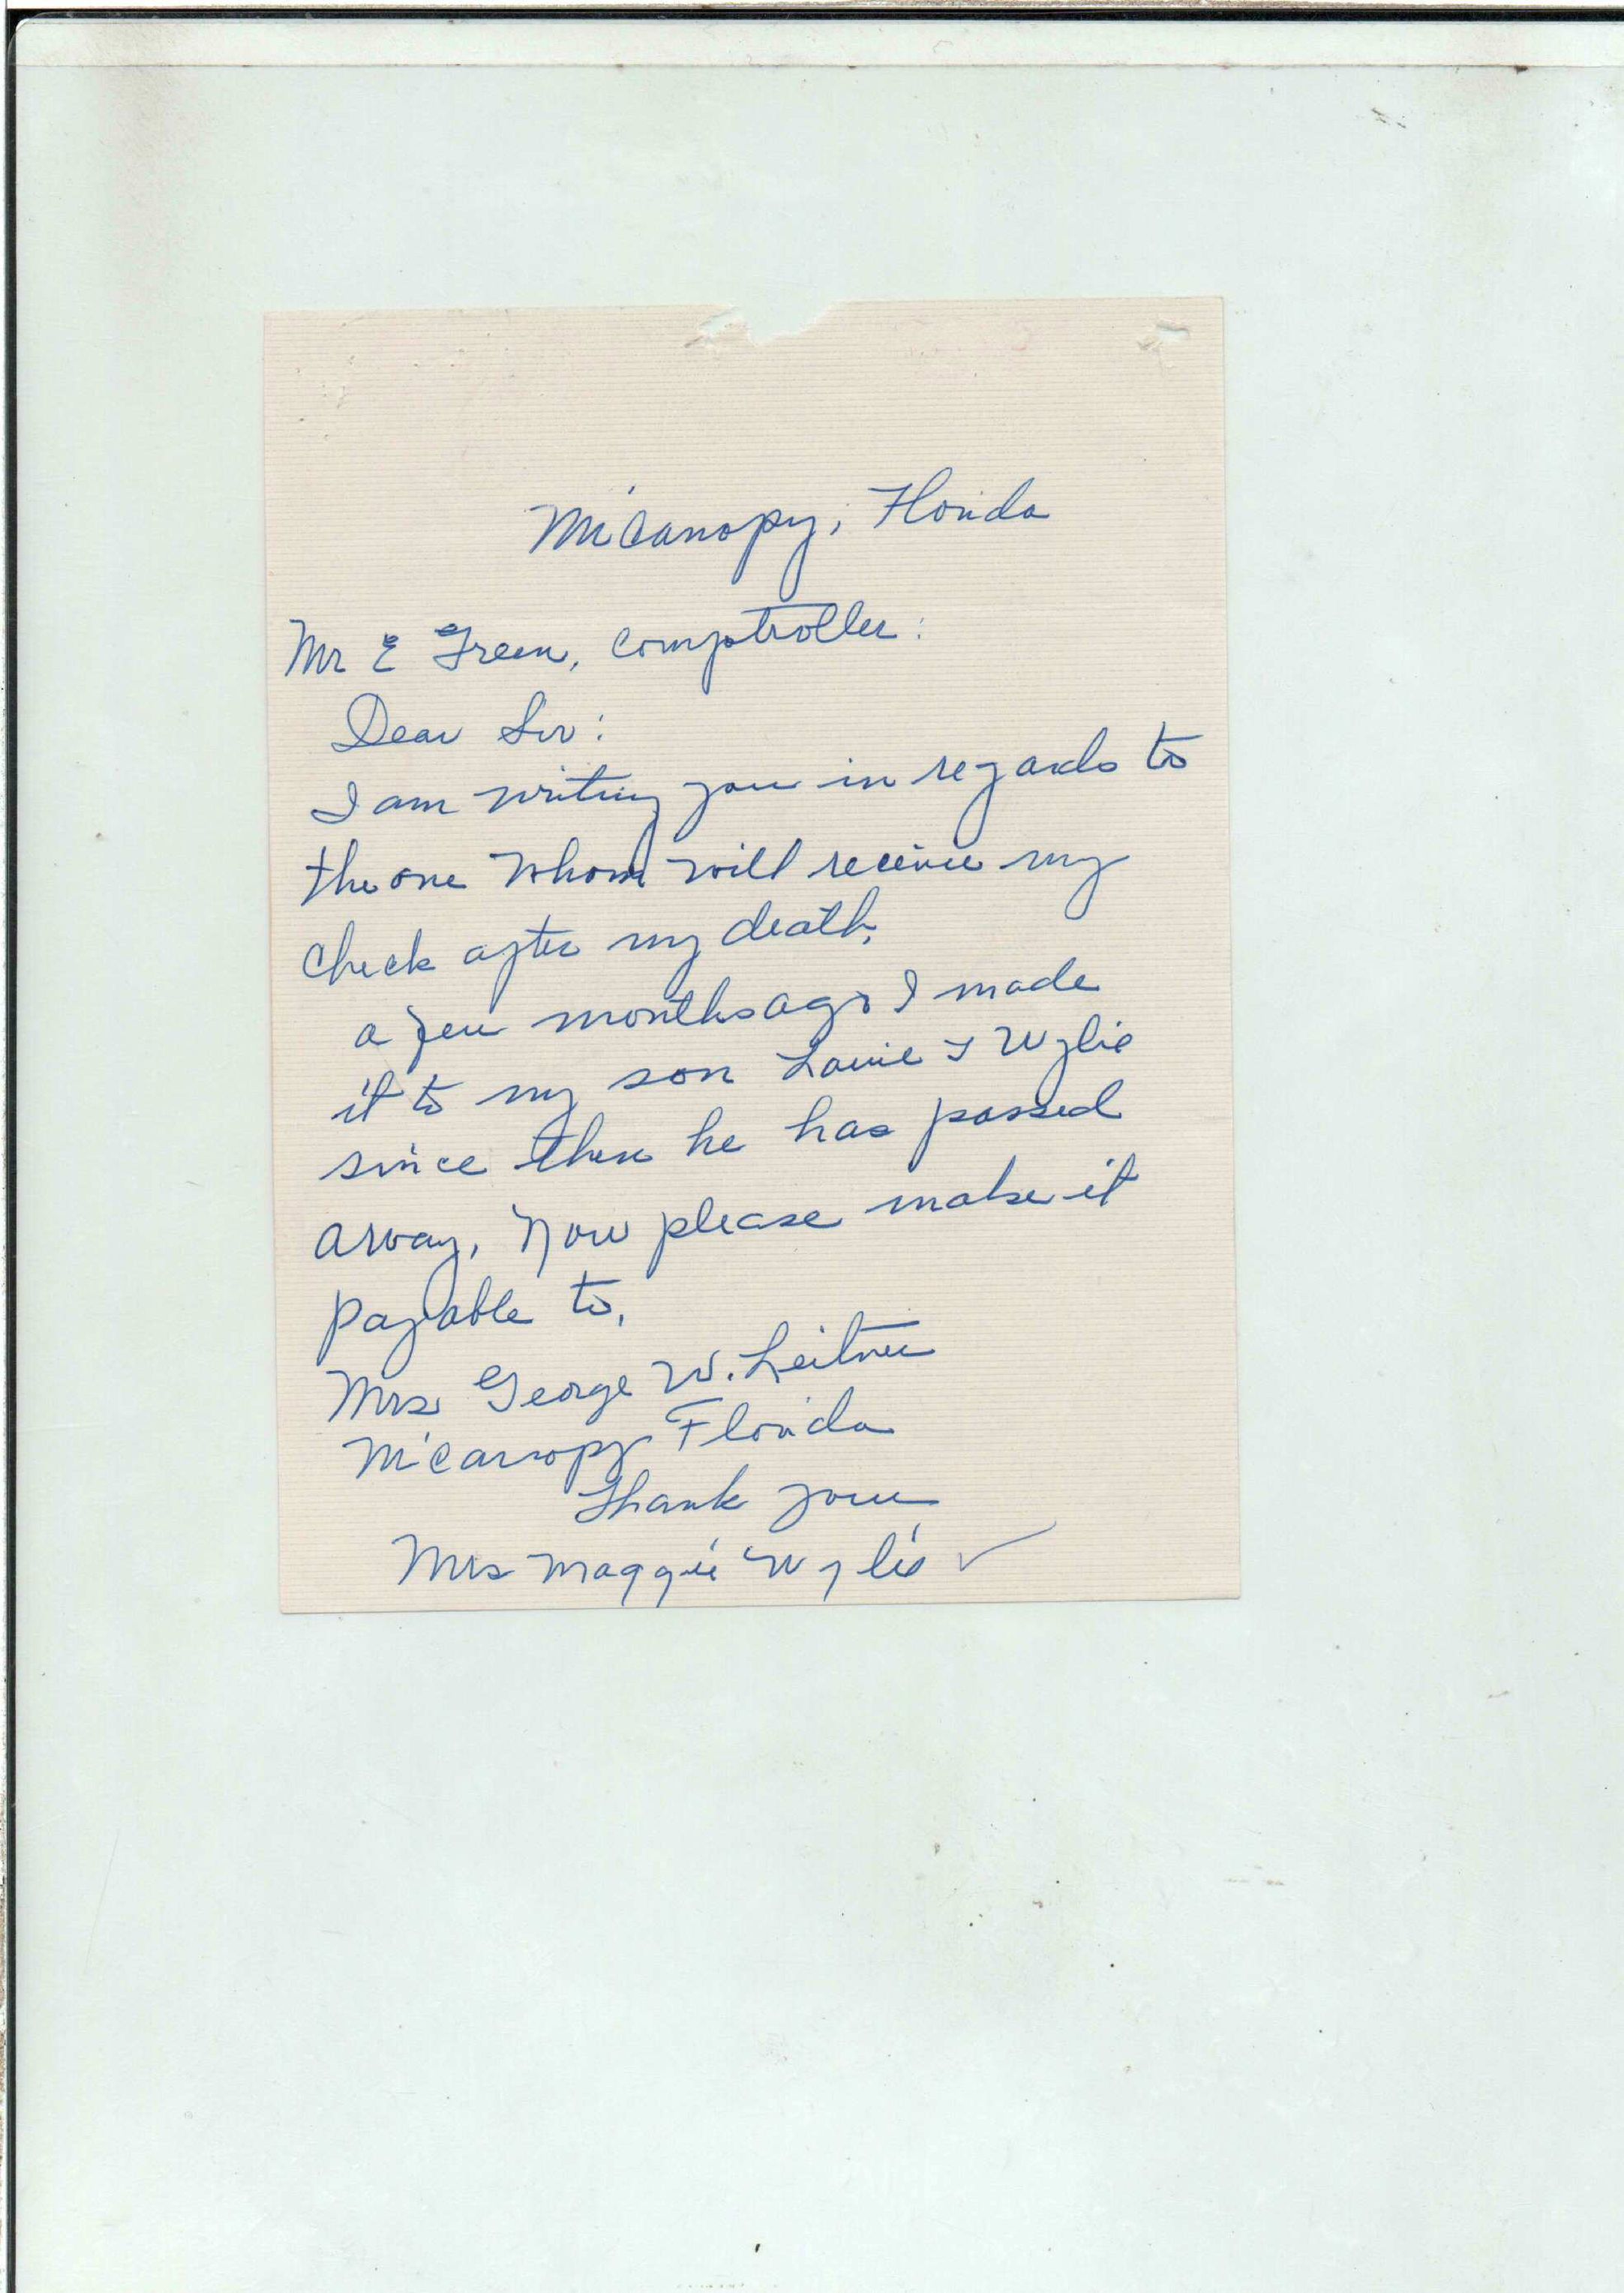 Micanopy, Florida
Mr E Green, Comptroller:
Dear Sir:
I am writing you in regards to
the one whom will receive my
check after my death.
a few months ago I made
it to my son Louie Wylie
since then he has passed
away, Now please make it
payable to,
Mrs George W. Leitner
Micanopy Florida
Thank you
Mrs Maggie Wylie ✓